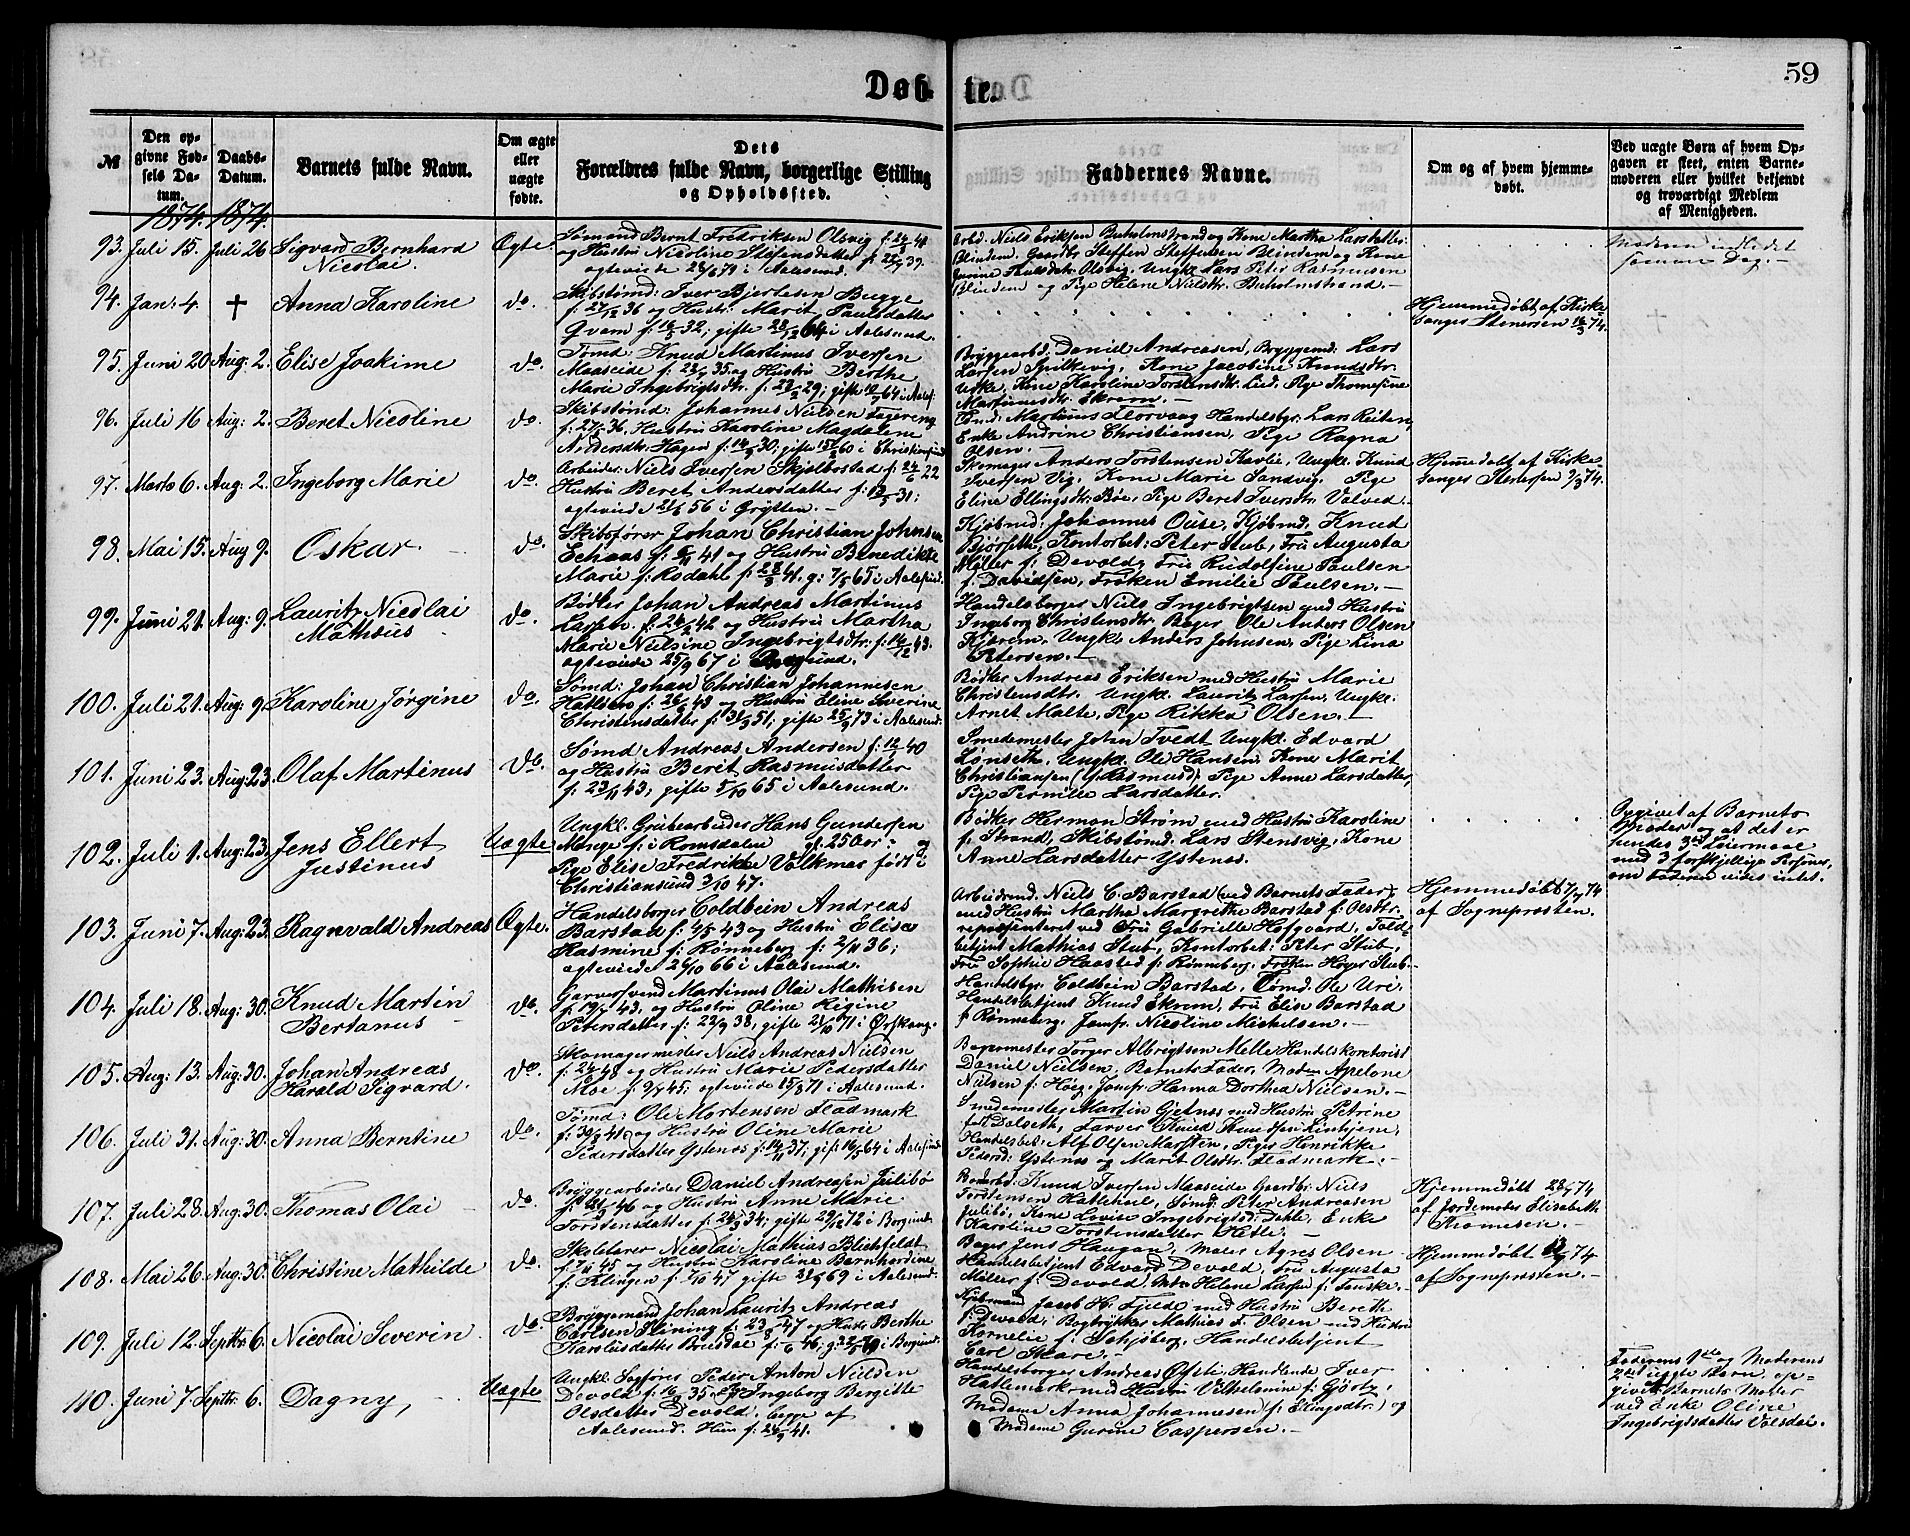 59
Døb
te.
№
Den op-
givne Fød-
sels Da-
tum.
Daabs-
Datum.
Barnets fulde Navn.
Om ægte
eller
uægte
fødte.
Dets
Forældres fulde Navn, borgerlige Stilling
og Opholdssted.
Faddernes Navne.
Om og af hvem hjemme-
døbt.
Ved uægte Børn af hvem Op-
gaven er skeet, enten Barne-
moderen eller hvilket bekjendt
og troværdigt Medlem
af Menigheden.
1874. 1874.
93. Juli 15. Juli 26 Sigvard Bernhard
Nicolai.
Ægte.
Sømand Bernt Fredriksen Olsvig
og Hustru Nicoline Stefensdatter
ægteviede i Aalesund.
Arbd. Niels Eriksen Buholmstrand og Kone Martha Larsdatter
Blindem. Gaardbr. Steffen Steffensen Blindem og Kone
Olsvig, Ungkl. Lars Peter Rasmussen
Blindem og Pige Helene Nielsdtr. Buholmstrand.
Moderen indledet
samme Dag.
94. Jan: 4. † Anna Karoline do.
Skibstømd: Iver Bjertesen Bugge
f: 27/12 36 og Hustru Marit Paulsdatter
Qvam 32; gifte 64 i Aalesund.
Hjemmedøbt af Kirke-
sanger Stenersen 74.
95. Juni 20 Aug: 2. Elise Joakime do.
Tømd: Knud Martinus Iversen
Maaseide 35 og Hustru Berthe
Marie Ingebrigtsdtr. 29; gifte 64 i Aalesd.
Bryggearbd: Daniel Andreasen, Bryggemd: Lars
Larsen Spilkevig, Kone Jacobine Knudsdtr.
Urke, Kone Karoline Torstensdtr. Lied, Pige Thomasine
Martinusdtr. Ekrem.
96. Juli 16 Aug: 2. Beret Nicoline do.
Skibstømd: Johannes Nielsen Fagereng
36, Hustru Karoline Magdalene
Andersdtr. Hagen 30; gifte 60 i Christiansund
Tømd: Martinus Florvaag Handelsbgr. Lars Reiten,
Enke Andrine Christiansen, Pige Ragna
Olsen.
97. Marts 6. Aug: 2. Ingeborg Marie do.
Arbeider: Niels Iversen Skjelbostad f: 24/6 22
Hustru Beret Andersdatter 31;
ægteviede 56 i Grytten.
Skomager Anders Torstensen Kavlie, Ungkl. Knud
Iversen Vig, Kone Marie Sandvig, Pige
Eline Ellingsdtr. Bøe, Pige Beret Iversdtr. Valved.
Hjemmedøbt af Kirke-
sanger Stenersen 74.
98. Mai 15. Aug 9. Oskar. do.
Skibsfører Johan Christian Johnsen
Echaas 41 og Hustru Benedikte
Marie f: Rodahl 41. g: 7/5 65 i Aalesund.
Kjøbmd: Johannes Ouse, Kjøbmd. Knud
Bjørseth, Kontorbet: Peter Stub, Fru Augusta
Møller f: Devold, Fru Rudolfine Paulsen
f: Davidsen, Frøken Emilie Paulsen.
99. Juni 21. Aug: 9. Lauritz Nicolai
Mathæus do
Bødker Johan Andreas Martinus
Larsen 42 og Hustru Martha
Marie Nielsine Ingebrigtsdtr. f: 14/12 43.
ægteviede 25/9 67 i Borgund.
Handelsborger Niels Ingebrigtsen med Hustru
Ingeborg Christensdtr. Bager Ole Anders Olsen
Kjærem, Ungkl. Anders Johnsen, Pige Lina
Petersen.
100. Juli 21. Aug: 9 Karoline Jørgine do.
Sømd: Johan Christian Johannesen
48 og Hustru Eline Severine
Christensdatter f: 31/3 51; gifte 25/9 73 i Aalesund.
Bødker Andreas Eriksen med Hustru Marie
Christensdtr. Ungkl. Lauritz Larsen, Ungkl.
Arnet Malte, Pige Rikka Olsen.
101. Juni 23. Aug: 23. Olaf Martinus do.
Sømd Andreas Andersen 40
og Hustru Berit Rasmusdatter
f: 23/11 43; gifte 5/10 65 i Aalesund.
Smedemester Johan Tvedt Ungkl. Edvard
Lønseth, Ungkl. Ole Hansen, Kone Marit
Christiansen (g Rasmusd) Pige Anne Larsdatter,
Pige Pernille Larsdatter.
102. Juli 1. Aug: 23. Jens Ellert
Justinus Uægte
Ungkl. Grubearbeider Hans Gundersen
Monge f: i Romsdalen gl. 25 Aar og
Pige Elise Fredrikke Volkmar født i
Christiansund 3/10 47.
Bødker Herman Strøm med Hustru Karoline
f: Strand, Skibstømd. Lars Stensvig, Kone
Anne Larsdatter Ystenes.
Opgivet af Barnets
Moder og at det er
hendes 3die Leiermaal
med 3 forskjellige Personer,
om Faderen vides intet.
103. Juni 7. Aug: 23. Ragnvald Andreas Ægte.
Handelsborger Coldbein Andreas
Barstad f: 4/5 43 og Hustru Elise
Rasmine f: Rønneberg f: 2/11 36;
ægteviede 66 i Aalesund.
Arbeidsmd. Niels C. Barstad (ved Barnets Fader)
med Hustru Martha Margrethe Barstad f: Olsdtr.
repræsenteret ved Fru Gabrielle Hofgaard, Told-
betjent Mathias Stub, Kontorbet: Peter Stub,
Fru Sophie Haasted f: Rønneberg, Frøken Høyer Stub.
Hjemmedøbt 74
af Sognepræsten.
104. Juli 18. Aug: 30. Knud Martin
Bertanus do.
Garversvend Martinus Olai Mathisen
43, og Hustru Oline Regine
Petersdatter f: 22/9 38, gifte 71 i Ørskoug.
Handelsbgr. Coldbein Barstad, Tømd. Ole Uri,
Handelsbetjent Knud Ekrem, Fru Elise Barstad
f Rønneberg, Jomfr. Nicoline Michelsen.
105. Aug: 13. Aug: 30. Johan Andreas
Harald Sigvard. do.
Skomagermester Niels Andreas Nielsen
48 og Hustru Marie Pedersdatter
Moe 45; ægteviede 71 i Aalesund.
Bagermester Torger Albrigtsen Melle Handelskontorist
Daniel Nielsen, Barnets Fader, Madm Apelone
Nielsen f: Høeg, Jomfr. Hanna Dorthea Nielsen.
106. Juli 31. Aug: 30. Anna Berntine do.
Tømd: Ole Mortensen Fladmark
41 og Hustru Oline Marie
Pedersdatter Ystenes f: 14/11 37; gift 64 i Aalesund
Smedemester Martin Gjetnes med Hustru Petrine
født Dalseth, Farver Knud Knudsen Linhjem,
Handelsbet: Alf Olsen Marsten, Piger Henrikke
Pedersd: Ystenes og Marit Olsdtr. Fladmark.
107. Juli 28. Aug: 30. Thomas Olai do.
Bryggearbeider Daniel Andreasen Julibø
46 og Hustru Anne Marie
Torstensdatter 34; gifte 29/12 72 i Borgund.
Knud Iversen Maaseide Gaardbr: Niels
Torstensen Hatlehol, Sømd: Peter Andreasen
Julibø, Kone Lovise Ingebrigtsd: Dahle, Enke
Karoline Torstensdatter Hetle.
Hjemmedøbt 74
af Jordemoder Elisabeth
108. Mai 26 Aug: 30. Christine Mathilde do.
Skolelærer Nicolai Mathias Blichfeldt
45 og Hustru Karoline Bernhardine
f: Klingen f: 7/10 47 gifte 69 i Aalesund.
Bager Jens Haugan, Maler Agnes Olsen
Handelsbetjent Edvard Devold, Fru Augusta
Møller f: Devold, Helene Larsen f: Fanske.
Hjemmedøbt 74
af Sognepræsten.
109. Juli 12. Septbr: 6. Nicolai Severin do.
Bryggemand Johan Lauritz Andreas
Carlsen Slining f: 23/8 47 og Hustr: Berthe
Karolusdatter Brusdal 46; g: 70 i Borgund.
Kjøbmand Jacob H. Fjelde med Hustru Bereth
f: Devold, Bogtrykker Mathias L. Olsen med Hustru
Kornelie f: Schjøberg, Handelsbetjent
Carl Skare.
110. Juni 7. Septbr. 6. Dagny, Uægte
Ungkl. Søfører Peder Anton Nielsen
Devold 35. Ingeborg Bergitte
Olsdatter Devold, begge af
Aalesund. Hun f: 24/9 41.
Handelsborger Andreas Øfsti, Handlende Iver
Hatlemark med Hustru Vilhelmine f: Gjørtz,
Madame Anna Johannesen (f: Ellingsdtr.) og
Madame Gurine Caspersen.
Faderens 1ste og Moderens
2det uægte Barn, op-
givet Barnets Moder
ved Enke Oline
Ingebrigtsdatter Volsdal.